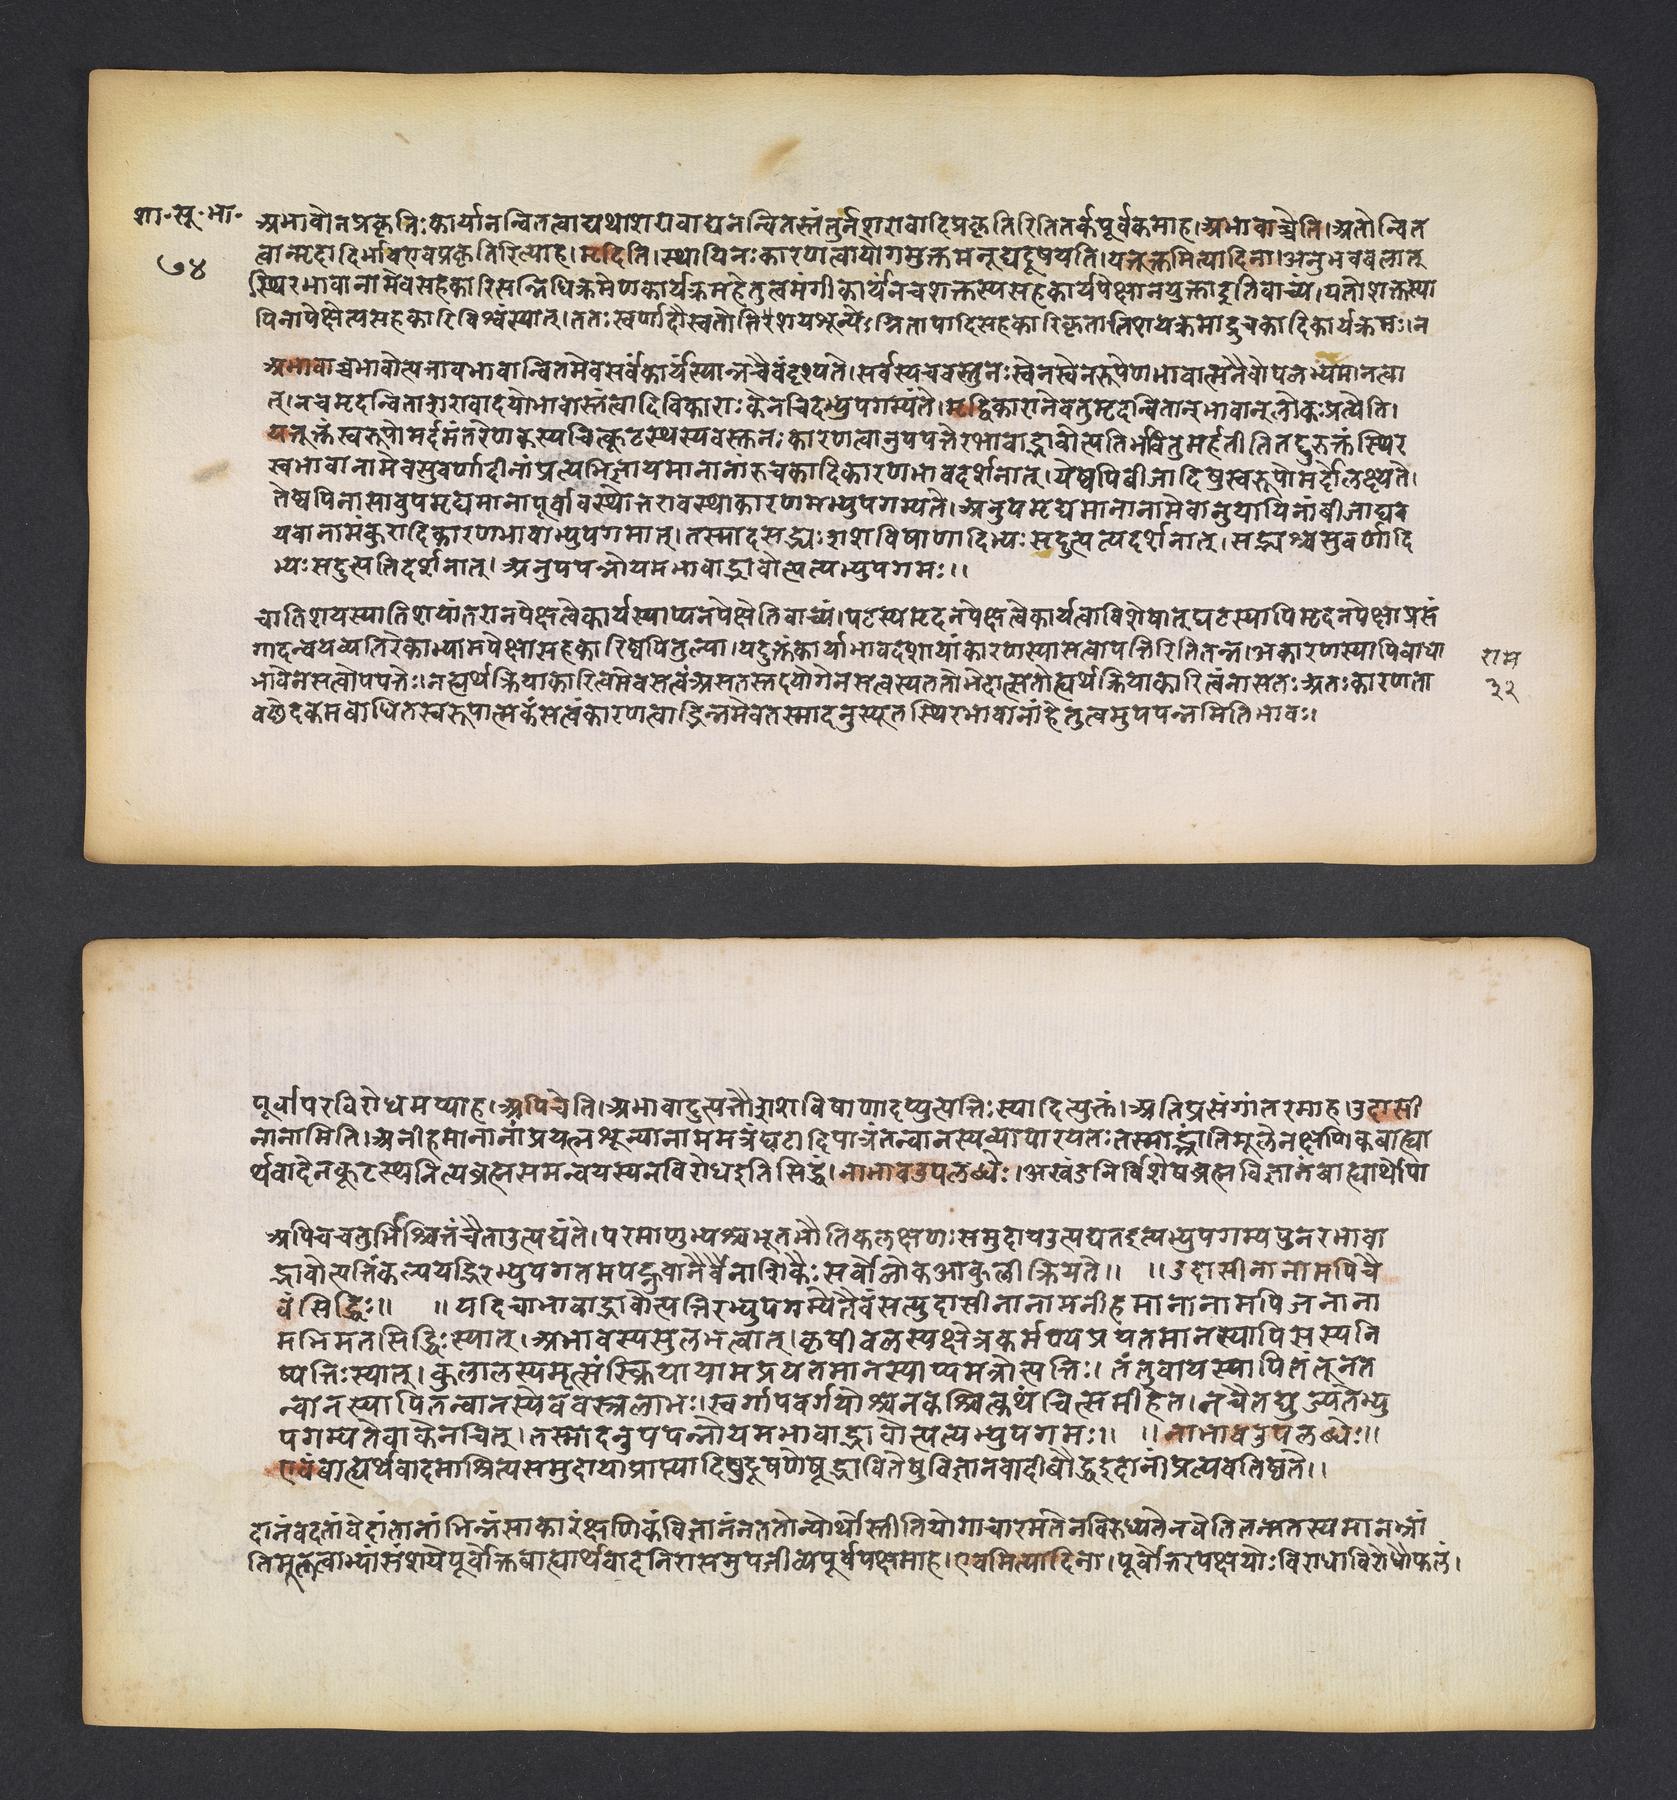 शा॰सू॰भा॰
७४
अभावोनप्रकृतिःकार्यानन्वितत्वाद्यथाशरावाद्यनन्वितस्तंतुर्नशरावादिप्रकृतिरितितर्कपूर्वकमाह।अभावाच्चेति।अतोन्वित
त्वान्मृदादिर्भावएवप्रकृतिरित्याह।मृदिति।स्थायिनःकारणत्वायोगमुक्तमनूद्यदूषयति।यत्तूक्तमित्यादिना।अनुभवबलात्
स्थिरभावानामेवसहकारिसन्निधिक्रमेणकार्यक्रमहेतुत्वमंगीकार्यंनचशक्तस्यसहकार्यपेक्षानयुक्ताइतिवाच्यं।यतोशक्तस्या
पिनापेक्षेत्यसहकारिविश्वंस्यात्।ततःस्वर्णादौस्वतोतिशयशून्येःग्नितापादिसहकारिकृतातिशयक्रमाद्रुचकादिकार्यक्रमः।न
अभावाच्चभावोत्पत्तावभावान्वितमेवसर्वंकार्यंस्यान्नचैवंदृश्यते।सर्वस्यचवस्तुनःस्वेनस्वेनरूपेणभावात्मनैवोपलभ्यमानत्वा
त्।नचमृदन्विताशरावादयोभावास्तंत्वादिविकाराःकेनचिदभ्युपगम्यंते।मृद्विकारानेवतुमृदन्वितान्भावान्लोकःप्रत्येति।
यत्तूक्तंस्वरूपोमर्दमंतरेणकस्यचित्कूटस्थस्यवस्तुनःकारणत्वानुपपत्तेरभावाद्भावोत्पत्तिर्भवितुमर्हतीतितद्दुरुक्तंस्थिर
स्वभावानामेवसुवर्णादीनांप्रत्यभिज्ञायमानानांरुचकादिकारणभावदर्शनात्।येष्वपिबीजादिषुस्वरूपोमर्दोलक्ष्यते।
तेष्वपिनासावुपमृद्यमानापूर्वावस्थोत्तरावस्थाकारणमभ्युपगम्यते।अनुपमृद्यमानानामेवानुयायिनांबीजाद्यव
यवानामंकुरादिकारणभावाभ्युपगमात्।तस्मादसद्भ्यःशशविषाणादिभ्यःसदुत्पत्त्यदर्शनात्।सद्भ्यश्चसुवर्णादि
भ्यःसदुत्पत्तिदर्शनात्।अनुपपन्नोयमभावाद्भावोत्पत्त्यभ्युपगमः।।
चातिशयस्यातिशयांतरानपेक्षत्वेकार्यस्याप्यनपेक्षेतिवाच्यं।पटस्यमृदनपेक्षत्वेकार्यत्वाविशेषात्घटस्यापिमृदनपेक्षाप्रसं
गादन्वयव्यतिरेकाभ्यामपेक्षासहकारिष्वपितुल्या।यदुक्तंकार्याभावदशायांकारणस्यासत्वापत्तिरितितन्न।अकारणस्यापिबाधा
भावेनसत्वोपपत्तेः।नह्यर्थक्रियाकारित्वमेवसत्वंअसतस्तदयोगेनसत्वस्यततोभेदात्सतोह्यर्थक्रियाकारित्वंनासतःअतःकारणता
वच्छेदकमबाधितस्वरूपात्मकंसत्वंकारणत्वाद्भिन्नमेवतस्मादनुस्यूतस्थिरभावानांहेतुत्वमुपपन्नमितिभावः।
राम
३२
पूर्वापरविरोधमप्याह।अपिचेति।अभावादुत्पत्तौशशविषाणादप्युत्पत्तिःस्यादित्युक्तं।अतिप्रसंगांतरमाह।उदासी
नानामिति।अनीहमानानांप्रयत्नशून्यानाममत्रंघटादिपात्रंतन्वानस्यव्यापारयतःतस्माद्भ्रांतिमूलेनक्षणिकबाह्या
र्थवादेनकूटस्थनित्यब्रह्मसमन्वयस्यनविरोधइतिसिद्धं।नाभावउपलब्धेः।अखंडनिर्विशेषब्रह्मविज्ञानंबाह्यार्थोपा
अपिचचतुर्भिश्चित्तंचैत्ताउत्पद्यंते।परमाणुभ्यश्चभूतभौतिकलक्षणःसमुदायउत्पद्यतइत्यभ्युपगम्यपुनरभावा
द्भावोत्पत्तिंकल्पयद्भिरभ्युपगतमपह्नुवानैर्वैनाशिकैःसर्वोलोकआकुलीक्रियते।।   ।।उदासीनानामपिचै
वंसिद्धिः।।   ।।यदिचाभावाद्भावोत्पत्तिरभ्युपगम्येतैवंसत्युदासीनानामनीहमानानामपिजनाना
मभिमतसिद्धिःस्यात्।अभावस्यसुलभत्वात्।कृषीवलस्यक्षेत्रकर्मण्यप्रयतमानस्यापिसस्यनि
ष्पत्तिःस्यात्।कुलालस्यमृत्संस्क्रियायामप्रयतमानस्याप्यमत्रोत्पत्तिः।तंतुवायस्यापितंतूनत
न्वानस्यापितन्वानस्येववस्त्रलाभः।स्वर्गापवर्गयोश्चनकश्चित्कथंचित्समीहेत।नचैतद्युज्यतेभ्यु
पगम्यतेवाकेनचित्।तस्मादनुपपन्नोयमभावाद्भावोत्पत्त्यभ्युपगमः।।   ।।नाभावउपलब्धेः।।
एवंबाह्यार्थवादमाश्रित्यसमुदायाप्राप्त्यादिषुदूषणेषूद्भावितेषुविज्ञानवादीबौद्धइदानींप्रत्यवतिष्ठते।।
दानंवदतांवेदांतानांभिन्नंसाकारंक्षणिकंविज्ञानंनततोन्योर्थोस्तीतियोगाचारमतेनविरुध्यतेनवेतितन्मतस्यमानभ्रां
तिमूलत्वाभ्यांसंशयेपूर्वोक्तबाह्यार्थवादनिरासमुपजीव्यपूर्वपक्षमाह।एवमित्यादिना।पूर्वोत्तरपक्षयोःविरोधाविरोधौफलं।